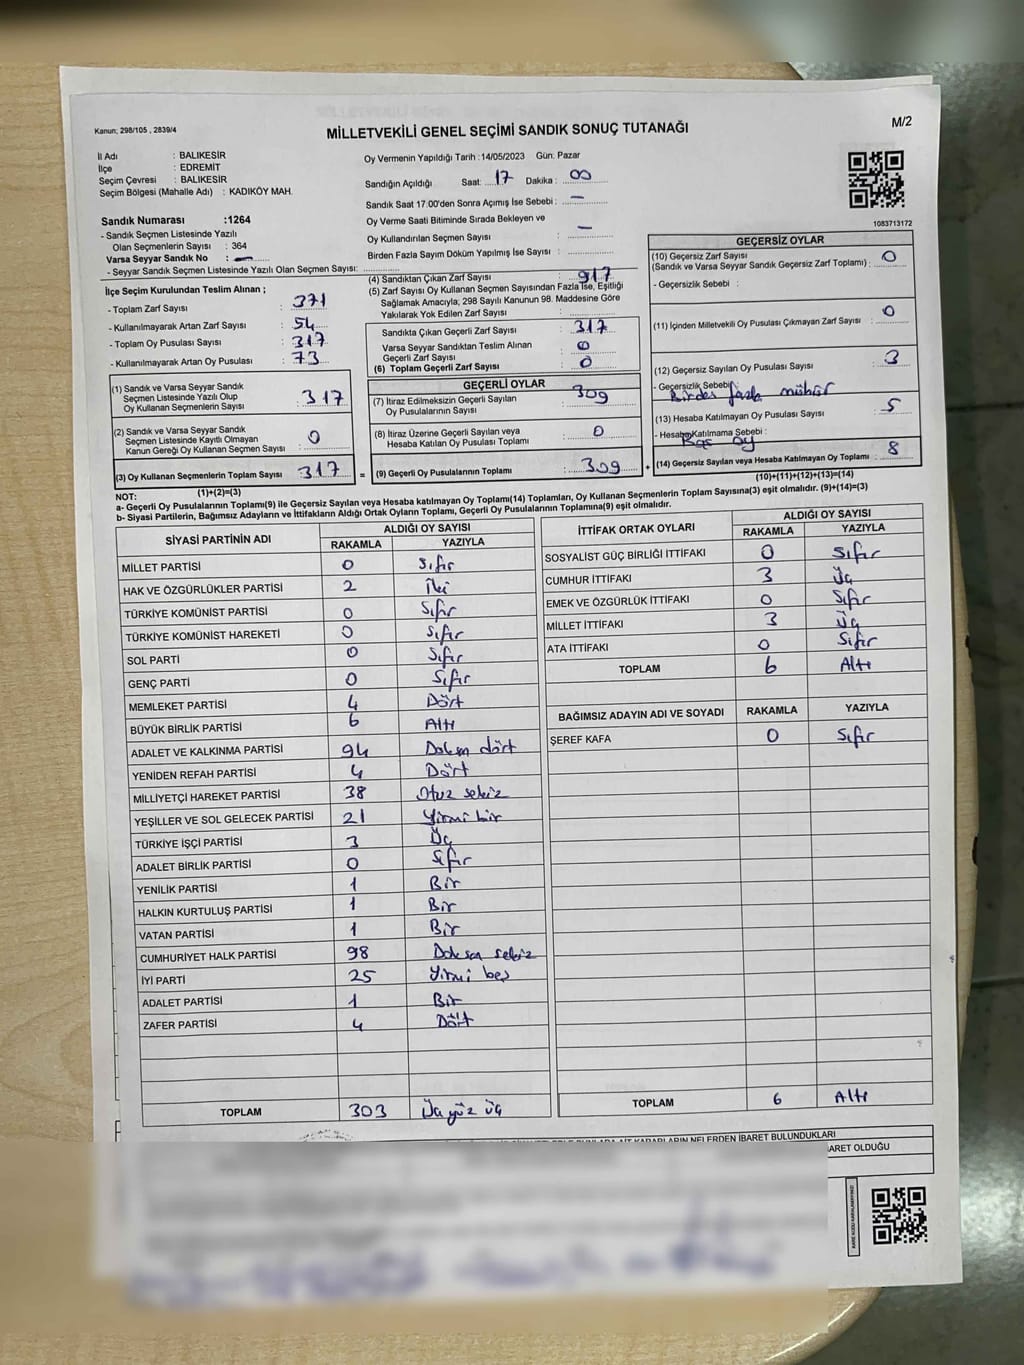 Kanun; 298/105 , 2839/4
MİLLETVEKİLİ GENEL SEÇİMİ SANDIK SONUÇ TUTANAĞI
M/2
İl Adı : BALIKESİR
İlçe : EDREMİT
Seçim Çevresi : BALIKESİR
Seçim Bölgesi (Mahalle Adı) : KADIKÖY MAH.
Oy Vermenin Yapıldığı Tarih :14/05/2023 Gün. Pazar
Sandığın Açıldığı Saat: 17 Dakika : 00
Sandık Saat 17:00'den Sonra Açımış İse Sebebi : -
Oy Verme Saati Bitiminde Sırada Bekleyen ve
Oy Kullandırılan Seçmen Sayısı : -
Birden Fazla Sayım Döküm Yapılmış İse Sayısı :
1083713172
Sandık Numarası :1264
- Sandık Seçmen Listesinde Yazılı
Olan Seçmenlerin Sayısı : 364
Varsa Seyyar Sandık No : -
- Seyyar Sandık Seçmen Listesinde Yazılı Olan Seçmen Sayısı:
İlçe Seçim Kurulundan Teslim Alınan ;
- Toplam Zarf Sayısı : 371
- Kullanılmayarak Artan Zarf Sayısı : 54
- Toplam Oy Pusulası Sayısı : 317
- Kullanılmayarak Artan Oy Pusulası : 73
(1) Sandık ve Varsa Seyyar Sandık
Seçmen Listesinde Yazılı Olup
Oy Kullanan Seçmenlerin Sayısı : 317
(2) Sandık ve Varsa Seyyar Sandık
Seçmen Listesinde Kayıtlı Olmayan
Kanun Gereği Oy Kullanan Seçmen Sayısı : 0
(3) Oy Kullanan Seçmenlerin Toplam Sayısı : 317
(1)+(2)=(3)
(4) Sandıktan Çıkan Zarf Sayısı : 917
(5) Zarf Sayısı Oy Kullanan Seçmen Sayısından Fazla İse, Eşitliği
Sağlamak Amacıyla; 298 Sayılı Kanunun 98. Maddesine Göre
Yakılarak Yok Edilen Zarf Sayısı :
Sandıkta Çıkan Geçerli Zarf Sayısı : 317
Varsa Seyyar Sandıktan Teslim Alınan
Geçerli Zarf Sayısı : 0
(6) Toplam Geçerli Zarf Sayısı : 0
GEÇERLİ OYLAR
(7) İtiraz Edilmeksizin Geçerli Sayılan
Oy Pusulalarının Sayısı : 309
(8) İtiraz Üzerine Geçerli Sayılan veya
Hesaba Katılan Oy Pusulası Toplamı : 0
= (9) Geçerli Oy Pusulalarının Toplamı : 309 +
GEÇERSİZ OYLAR
(10) Geçersiz Zarf Sayısı
(Sandık ve Varsa Seyyar Sandık Geçersiz Zarf Toplamı) : 0
- Geçersizlik Sebebi :
(11) İçinden Milletvekili Oy Pusulası Çıkmayan Zarf Sayısı : 0
(12) Geçersiz Sayılan Oy Pusulası Sayısı : 3
- Geçersizlik Sebebi: Birden fazla mühür
(13) Hesaba Katılmayan Oy Pusulası Sayısı : 5
- Hesaba Katılmama Sebebi : Boş oy
(14) Geçersiz Sayılan veya Hesaba Katılmayan Oy Toplamı : 8
(10)+(11)+(12)+(13)=(14)
NOT:
a- Geçerli Oy Pusulalarının Toplamı(9) ile Geçersiz Sayılan veya Hesaba katılmayan Oy Toplamı(14) Toplamları, Oy Kullanan Seçmenlerin Toplam Sayısına(3) eşit olmalıdır. (9)+(14)=(3)
b- Siyasi Partilerin, Bağımsız Adayların ve İttifakların Aldığı Ortak Oyların Toplamı, Geçerli Oy Pusulalarının Toplamına(9) eşit olmalıdır.
SİYASİ PARTİNİN ADI ALDIĞI OY SAYISI
RAKAMLA YAZIYLA
MİLLET PARTİSİ 0 Sıfır
HAK VE ÖZGÜRLÜKLER PARTİSİ 2 İki
TÜRKİYE KOMÜNİST PARTİSİ 0 Sıfır
TÜRKİYE KOMÜNİST HAREKETİ 0 Sıfır
SOL PARTİ 0 Sıfır
GENÇ PARTİ 0 Sıfır
MEMLEKET PARTİSİ 4 Dört
BÜYÜK BİRLİK PARTİSİ 6 Altı
ADALET VE KALKINMA PARTİSİ 94 Doksan dört
YENİDEN REFAH PARTİSİ 4 Dört
MİLLİYETÇİ HAREKET PARTİSİ 38 Otuz sekiz
YEŞİLLER VE SOL GELECEK PARTİSİ 21 Yirmi bir
TÜRKİYE İŞÇİ PARTİSİ 3 Üç
ADALET BİRLİK PARTİSİ 0 Sıfır
YENİLİK PARTİSİ 1 Bir
HALKIN KURTULUŞ PARTİSİ 1 Bir
VATAN PARTİSİ 1 Bir
CUMHURİYET HALK PARTİSİ 98 Doksan sekiz
İYİ PARTİ 25 Yirmi beş
ADALET PARTİSİ 1 Bir
ZAFER PARTİSİ 4 Dört
TOPLAM 303 Üçyüz üç
İTTİFAK ORTAK OYLARI ALDIĞI OY SAYISI
RAKAMLA YAZIYLA
SOSYALİST GÜÇ BİRLİĞİ İTTİFAKI 0 Sıfır
CUMHUR İTTİFAKI 3 Üç
EMEK VE ÖZGÜRLÜK İTTİFAKI 0 Sıfır
MİLLET İTTİFAKI 3 Üç
ATA İTTİFAKI 0 Sıfır
TOPLAM 6 Altı
BAĞIMSIZ ADAYIN ADI VE SOYADI RAKAMLA YAZIYLA
ŞEREF KAFA 0 Sıfır
TOPLAM 6 Altı
NELERDEN İBARET BULUNDUKLARI
ARET OLDUĞU